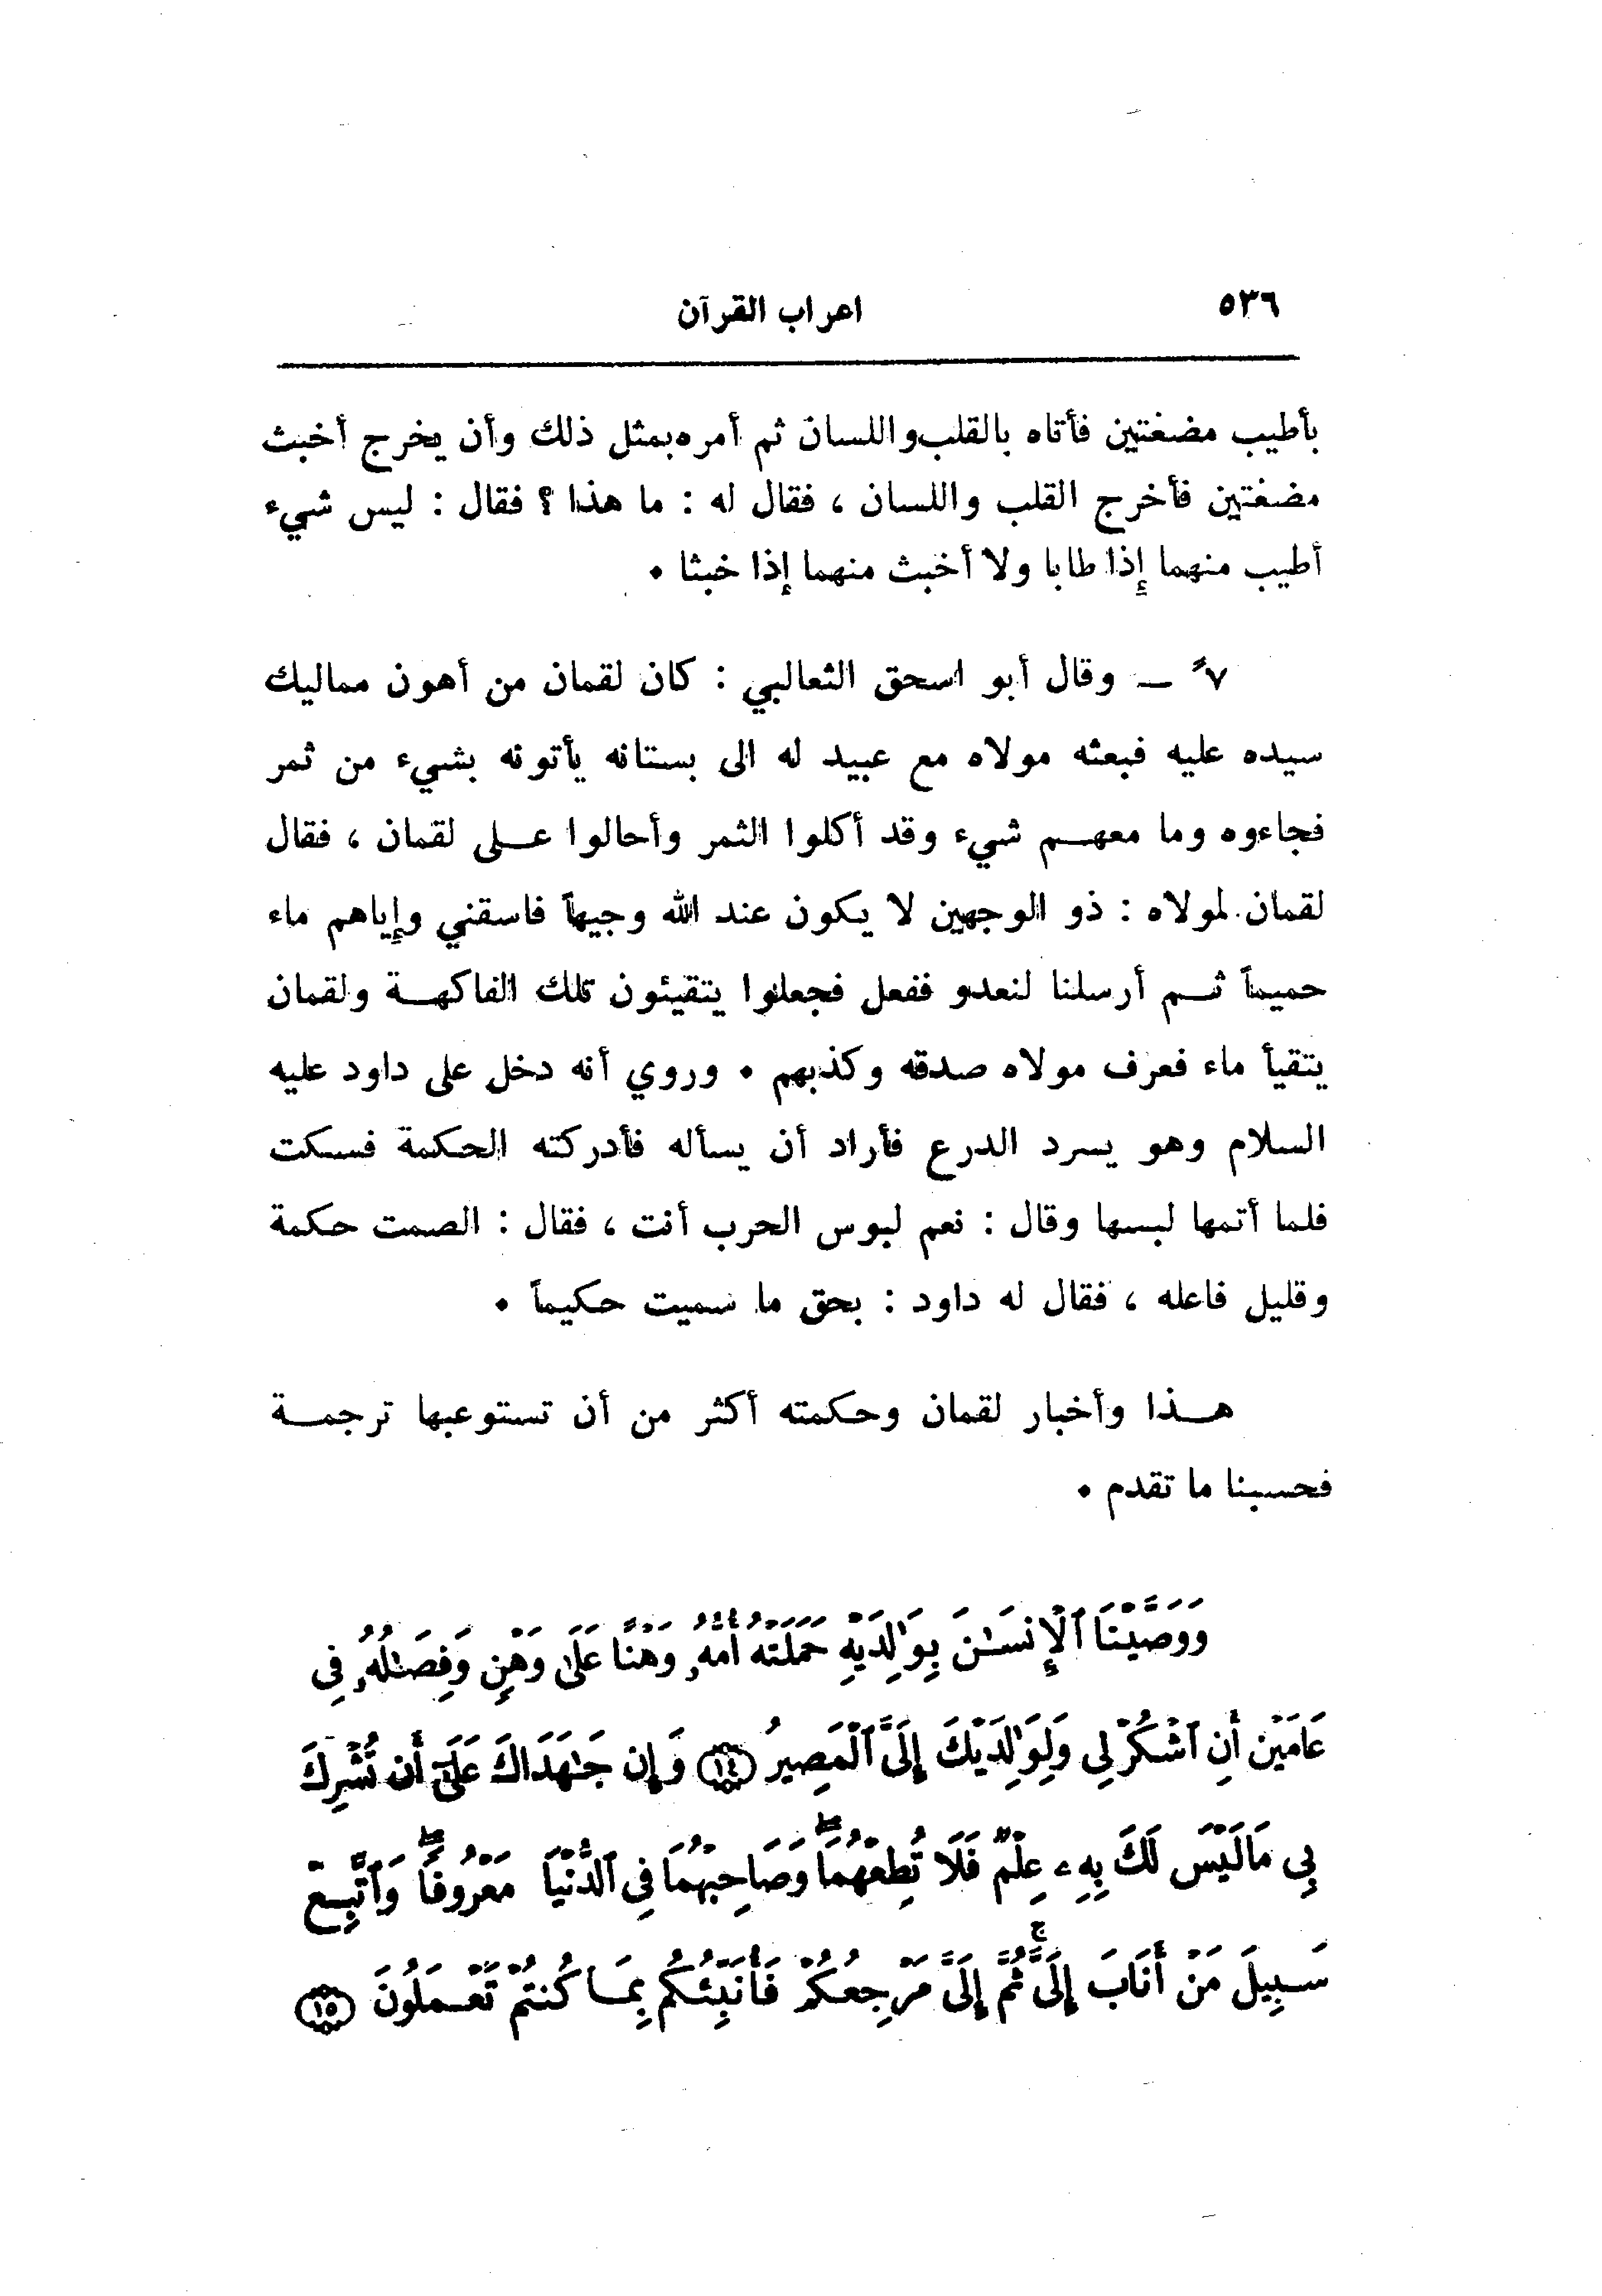 ٥٣٦ اعراب القرآن
بأطيب مضغتين فأتاه بالقلب واللسان ثم أمره بمثل ذلك وأن يخرج أخبث
مضغتين فأخرج القلب واللسان ، فقال له : ما هذا ؟ فقال : ليس شيء
أطيب منهما إذا طابا ولا أخبث منهما إذا خبثا ٠
٧ً ــ وقال أبو اسحق الثعالبي : كان لقمان من أهون مماليك
سيده عليه فبعثه مولاه مع عبيد له الى بستانه يأتونه بشيء من ثمر
فجاءوه وما معهم شيء وقد أكلوا الثمر وأحالوا على لقمان ، فقال
لقمان لمولاه : ذو الوجهين لا يكون عند الله وجيهاً فاسقني وإياهم ماء
حميماً ثم أرسلنا لنعدو ففعل فجعلوا يتقيئون تلك الفاكهة ولقمان
يتقيأ ماء فعرف مولاه صدقه وكذبهم ٠ وروي أنه دخل على داود عليه
السلام وهو يسرد الدرع فأراد أن يسأله فأدركته الحكمة فسكت
فلما أتمها لبسها وقال : نعم لبوس الحرب أنت ، فقال : الصمت حكمة
وقليل فاعله ، فقال له داود : بحق ما سميت حكيماً ٠
هذا وأخبار لقمان وحكمته أكثر من أن تستوعبها ترجمة
فحسبنا ما تقدم ٠
وَوَصَّيْنَا ٱلْإِنسَـٰنَ بِوَٰلِدَيْهِ حَمَلَتْهُ أُمُّهُۥ وَهْنًا عَلَىٰ وَهْنٍ وَفِصَـٰلُهُۥ فِى
عَامَيْنِ أَنِ ٱشْكُرْ لِى وَلِوَٰلِدَيْكَ إِلَىَّ ٱلْمَصِيرُ ۝١٤ وَإِن جَـٰهَدَاكَ عَلَىٰٓ أَن تُشْرِكَ
بِى مَا لَيْسَ لَكَ بِهِۦ عِلْمٌ فَلَا تُطِعْهُمَا ۖ وَصَاحِبْهُمَا فِى ٱلدُّنْيَا مَعْرُوفًا ۖ وَٱتَّبِعْ
سَبِيلَ مَنْ أَنَابَ إِلَىَّ ۚ ثُمَّ إِلَىَّ مَرْجِعُكُمْ فَأُنَبِّئُكُم بِمَا كُنتُمْ تَعْمَلُونَ ۝١٥